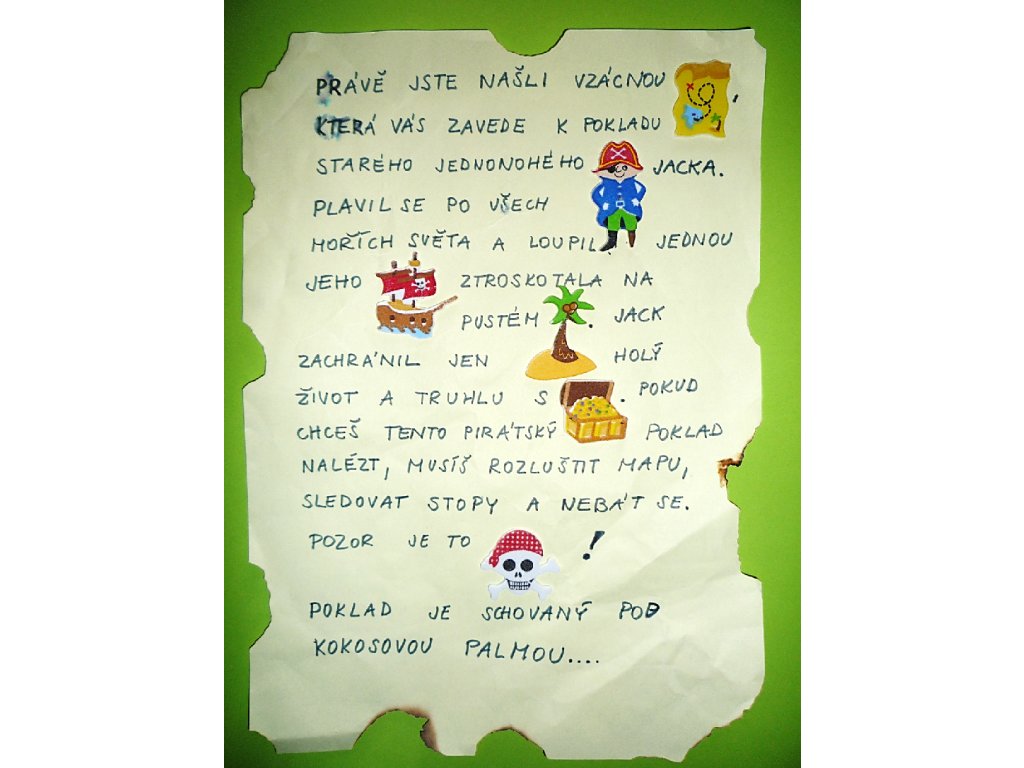 PRÁVĚ JSTE NAŠLI VZÁCNOU ,
KTERÁ VÁS ZAVEDE K POKLADU
STARÉHO JEDNONOHÉHO JACKA.
PLAVIL SE PO VŠECH
MOŘÍCH SVĚTA A LOUPIL. JEDNOU
JEHO ZTROSKOTALA NA
PUSTÉM . JACK
ZACHRÁNIL JEN HOLÝ
ŽIVOT A TRUHLU S . POKUD
CHCEŠ TENTO PIRÁTSKÝ POKLAD
NALÉZT, MUSÍŠ ROZLUŠTIT MAPU,
SLEDOVAT STOPY A NEBÁT SE.
POZOR JE TO !
POKLAD JE SCHOVANÝ POD
KOKOSOVOU PALMOU....